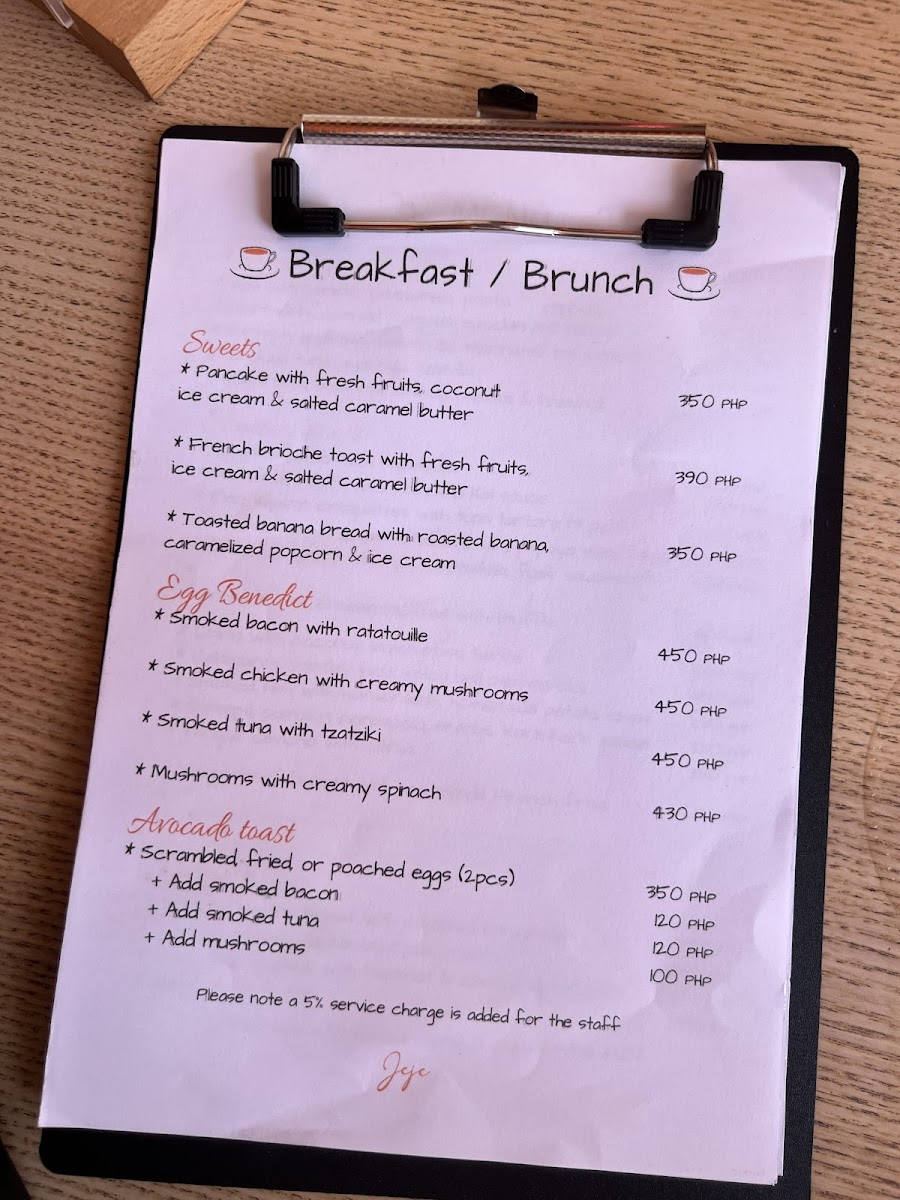 Breakfast / Brunch
Sweets
* Pancake with fresh fruits, coconut
ice cream & salted caramel butter 350 PHP
* French brioche toast with fresh fruits,
ice cream & salted caramel butter 390 PHP
* Toasted banana bread with roasted banana,
caramelized popcorn & ice cream 350 PHP
Egg Benedict
* Smoked bacon with ratatouille 450 PHP
* Smoked chicken with creamy mushrooms 450 PHP
* Smoked tuna with tzatziki 450 PHP
* Mushrooms with creamy spinach 430 PHP
Avocado toast
* Scrambled, fried, or poached eggs (2pcs) 350 PHP
+ Add smoked bacon 120 PHP
+ Add smoked tuna 120 PHP
+ Add mushrooms 100 PHP
Please note a 5% service charge is added for the staff
Jeje